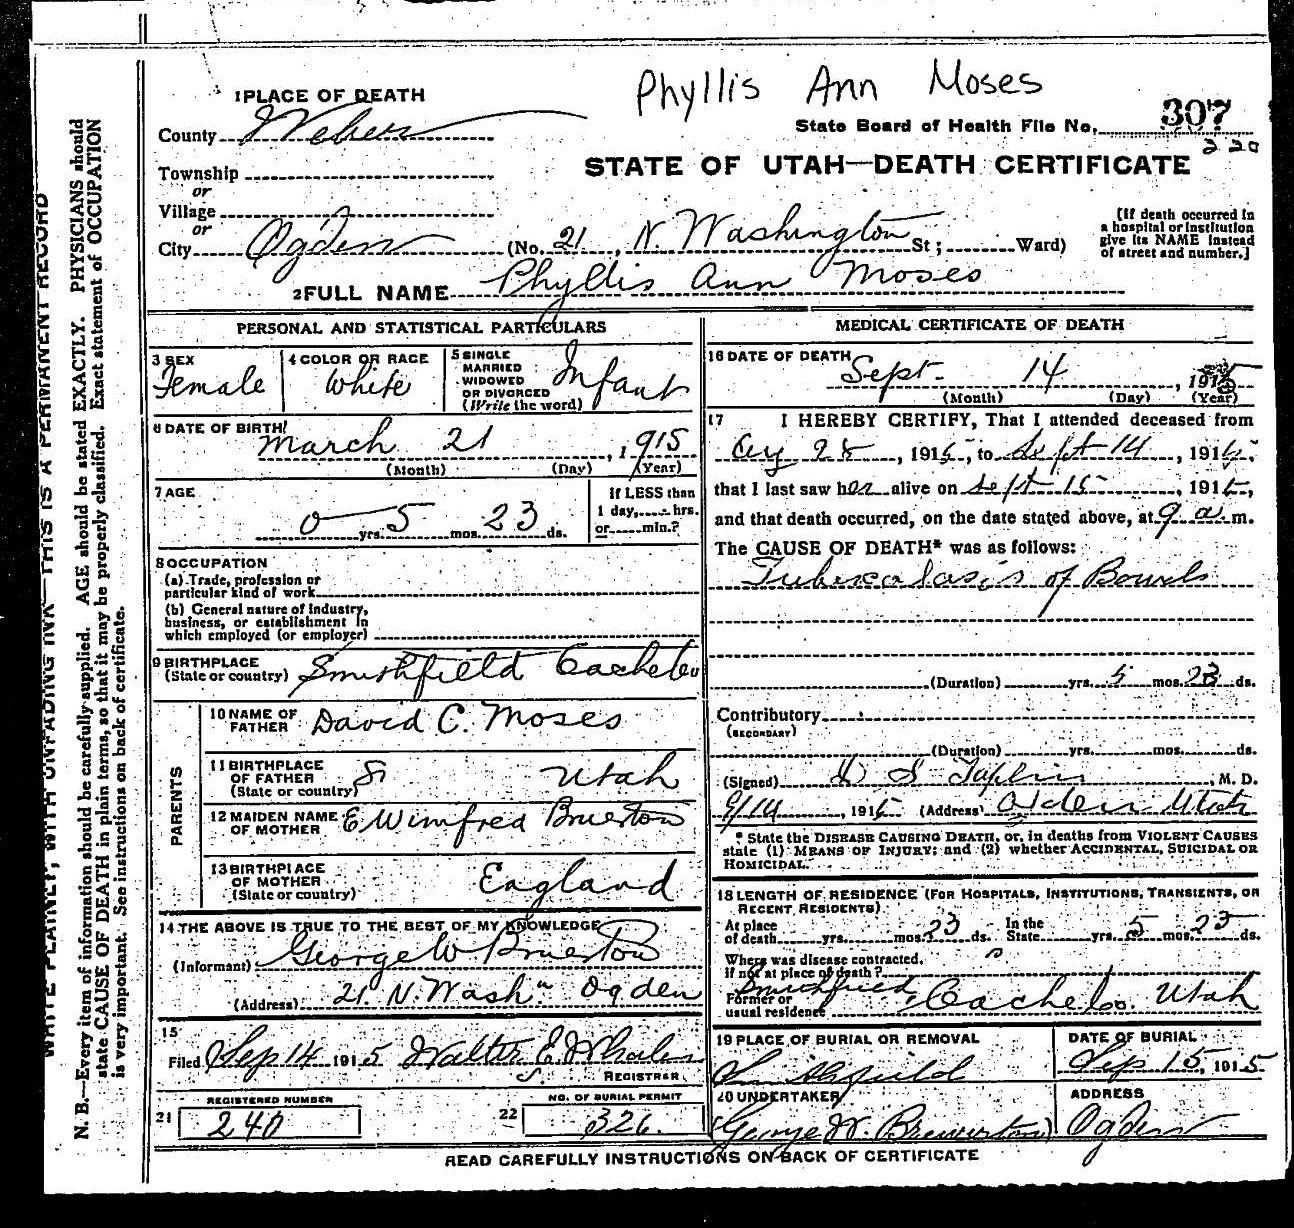 Phyllis Ann Moses
1 PLACE OF DEATH
County Weber
State Board of Health File No. 307
220
STATE OF UTAH—DEATH CERTIFICATE
Township
or
Village
or
City Ogden (No. 21, N. Washington St; Ward)
[If death occurred in a hospital or institution give its NAME instead of street and number.]
2 FULL NAME Phyllis Ann Moses
PERSONAL AND STATISTICAL PARTICULARS
3 SEX Female
4 COLOR OR RACE White
5 SINGLE MARRIED WIDOWED OR DIVORCED (Write the word) Infant
6 DATE OF BIRTH March 21, 1915
(Month) (Day) (Year)
7 AGE 0 yrs. 5 mos. 23 ds.
If LESS than 1 day, hrs. or min.?
8 OCCUPATION
(a) Trade, profession or particular kind of work
(b) General nature of industry, business, or establishment in which employed (or employer)
9 BIRTHPLACE (State or country) Smithfield Cache Co
PARENTS
10 NAME OF FATHER David C. Moses
11 BIRTHPLACE OF FATHER (State or country) Utah
12 MAIDEN NAME OF MOTHER E Winifred Bruerton
13 BIRTHPLACE OF MOTHER (State or country) England
14 THE ABOVE IS TRUE TO THE BEST OF MY KNOWLEDGE
(Informant) George W Bruerton
(Address) 21. N. Wash" Ogden
15
Filed Sep 14 1915 Walter E. Whalen
REGISTRAR
21 REGISTERED NUMBER 240
22 NO. OF BURIAL PERMIT 326.
MEDICAL CERTIFICATE OF DEATH
16 DATE OF DEATH Sept. 14, 1915
(Month) (Day) (Year)
17 I HEREBY CERTIFY, That I attended deceased from
Aug 28, 1915, to Sept 14, 1915,
that I last saw her alive on Sept 15, 1915,
and that death occurred, on the date stated above, at 9 a. m.
The CAUSE OF DEATH* was as follows:
Tuberculosis of Bowels
(Duration) yrs. 5 mos. 23 ds.
Contributory
(SECONDARY)
(Duration) yrs. mos. ds.
(Signed) Taplin, M. D.
9/14, 1915 (Address) Ogden Utah
* State the DISEASE CAUSING DEATH, or, in deaths from VIOLENT CAUSES
state (1) MEANS OF INJURY; and (2) whether ACCIDENTAL, SUICIDAL OR
HOMICIDAL.
18 LENGTH OF RESIDENCE (FOR HOSPITALS, INSTITUTIONS, TRANSIENTS, OR
RECENT RESIDENTS)
At place of death yrs. mos. 23 ds. In the State yrs. 5 mos. 23 ds.
Where was disease contracted,
if not at place of death?
Former or usual residence Smithfield, Cache Co. Utah
19 PLACE OF BURIAL OR REMOVAL Smithfield
DATE OF BURIAL Sep 15, 1915
20 UNDERTAKER George W. Brewerton
ADDRESS Ogden
READ CAREFULLY INSTRUCTIONS ON BACK OF CERTIFICATE
WRITE PLAINLY, WITH UNFADING INK—THIS IS A PERMANENT RECORD
N. B.—Every item of information should be carefully supplied. AGE should be stated EXACTLY. PHYSICIANS should
state CAUSE OF DEATH in plain terms, so that it may be properly classified. Exact statement of OCCUPATION
is very important. See instructions on back of certificate.